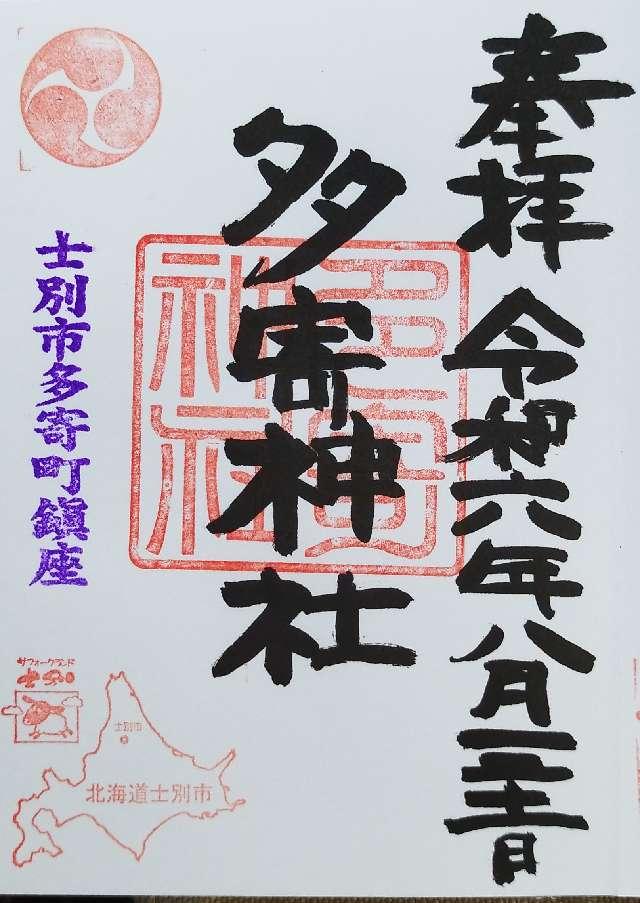 奉拝 令和六年八月二十二日
多寄神社
多寄神社
士別市多寄町鎮座
サフォークランド
士別
士別市
北海道士別市